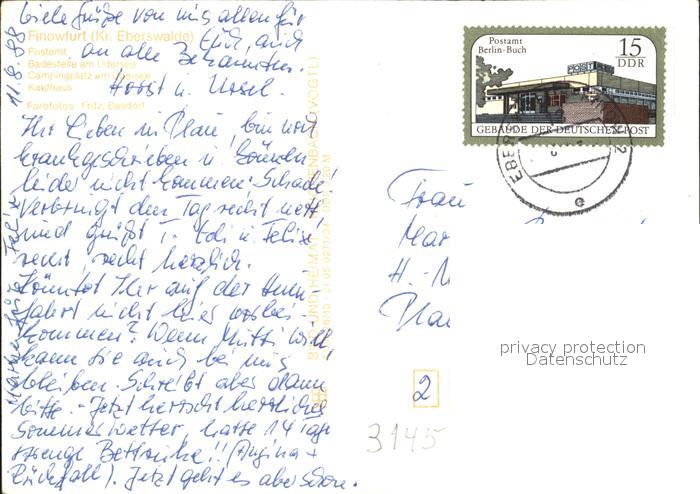 Viele Grüße von uns allen für
Euch, auch
an alle Bekannten.
Horst u. Ursel.
11.8.88
Finowfurt (Kr. Eberswalde)
Postamt
Badestelle am Üdersee
Campingplatz am Üdersee
Kaufhaus
Farbfotos: Fritz, Basdorf
Ihr Lieben in Plau, bin noch
krankgeschrieben u. können
leider nicht kommen. Schade!
Verbringt den Tag recht nett
und grüßt T. Edi u. Felix
recht, recht herzlich.
Könntet Ihr auf der Heim-
fahrt nicht hier vorbei-
kommen? Wenn Mutti will,
kann sie auch bei uns
bleiben. Schreibt aber dann
bitte. - Jetzt herrscht herrliches
Sommerwetter, hatte 14 Tage
strenge Bettruhe!! (Angina +
Rückfall). Jetzt geht es aber schon.
BILD UND HEIMAT REICHENBACH (VOGTL)
Postamt
Berlin-Buch
15
DDR
POST
GEBÄUDE DER DEUTSCHEN POST
EBER
2
e
Frau
Mar
H.-M
Plau
2
3145
privacy protection
Datenschutz